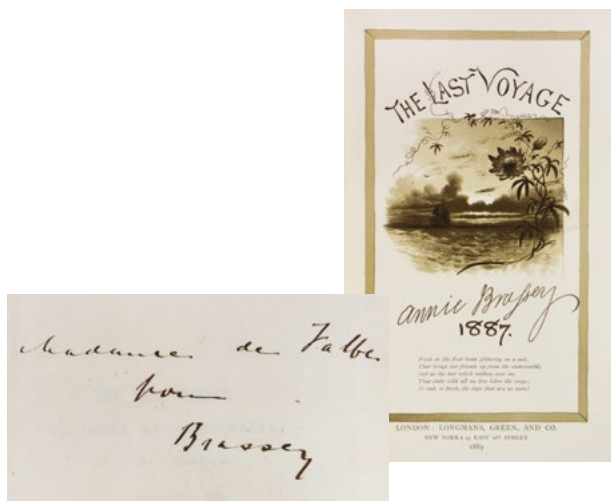 THE LAST VOYAGE
Annie Brassey
1887.
Fresh as the first beam glittering on a sail,
That brings our friends up from the underworld;
Sad as the last which reddens over one
That sinks with all we love below the verge;
So sad, so fresh, the days that are no more!
LONDON: LONGMANS, GREEN, AND CO.
NEW YORK: 15 EAST 16th STREET
1889
Madame de Falbe
from
Brassey